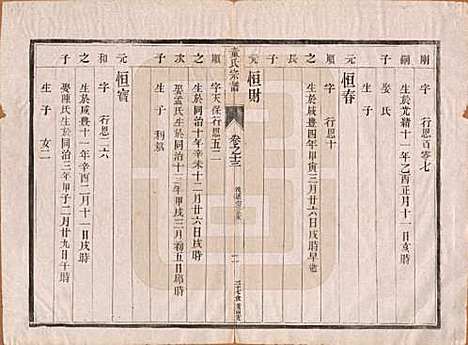 嗣 字 行恩百零七
子 娶氏
生於光緒十一年乙酉正月十一日亥時
元 恒春
字 行恩十
生於咸豐四年甲寅三月廿六日戌時早逝
元 恒財
順 字天保行恩五二
之 生於同治十年辛未十二月廿六日戌時
次 娶孟氏生於同治十三年甲戌三月初五日卯時
子 生子
童氏宗譜
卷之十三
元 恒寶
和 字 行恩二六
之 生於咸豐十一年辛酉二月十一日戌時
子 娶陳氏生於同治三年甲子二月廿九日午時
生子 女二